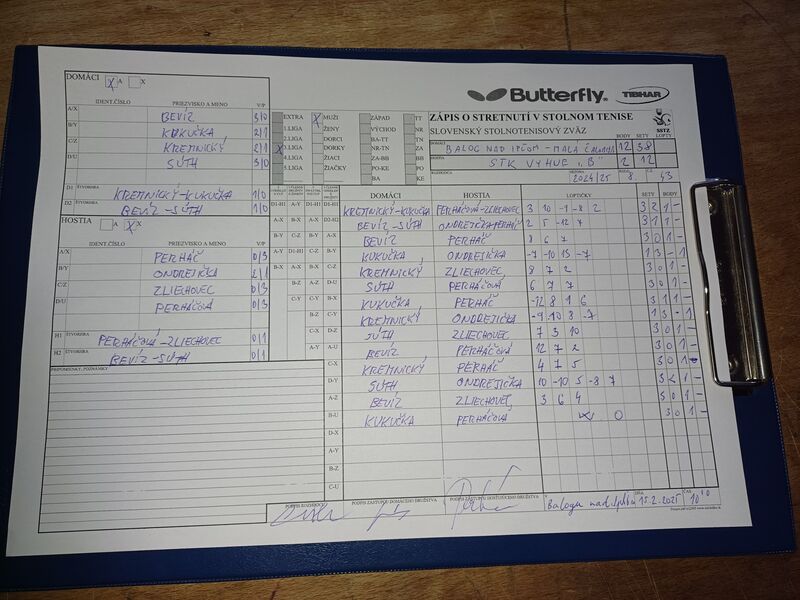 Butterfly. TIBHAR
DOMÁCI X A X
IDENT.ČÍSLO PRIEZVISKO A MENO V/P
A/X BEVÍZ 3/0
B/Y KUKUČKA 2/1
C/Z KREMNICKÝ 2/1
D/U SÚTH 3/0
D1 ŠTVORHRA KREMNICKÝ-KUKUČKA 1/0
D2 ŠTVORHRA BEVÍZ-SÚTH 1/0
HOSTIA A X X
IDENT.ČÍSLO PRIEZVISKO A MENO V/P
A/X PERHÁČ 0/3
B/Y ONDREJIČKA 2/1
C/Z ZLIECHOVEC 0/3
D/U PERHÁČOVÁ 0/3
H1 ŠTVORHRA PERHÁČOVÁ-ZLIECHOVEC 0/1
H2 ŠTVORHRA BEVÍZ-SÚTH 0/1
PRIPOMIENKY, POZNÁMKY
EXTRA X MUŽI ZÁPAD TT
1.LIGA ŽENY VÝCHOD NR
2.LIGA DORCI BA-TT TN
3.LIGA DORKY NR-TN ZA
4.LIGA ŽIACI ZA-BB BB
5.LIGA ŽIAČKY PO-KE PO
BA KE
ZÁPIS O STRETNUTÍ V STOLNOM TENISE
SLOVENSKÝ STOLNOTENISOVÝ ZVÄZ
SSTZ
BODY SETY
DOMÁCI BALOG NAD IPĽOM - MALÁ 12 38
HOSTIA STK VYHNE "B" 2 12
SEZÓNA 2024/25 8 43
DOMÁCI HOSTIA LOPTIČKY SETY BODY
KREMNICKÝ-KUKUČKA PERHÁČOVÁ-ZLIECHOVEC 3 10 -1 -8 2 3 2 1 -
BEVÍZ-SÚTH ONDREJIČKA-PERHÁČ 2 5 -12 7 3 1 1 -
BEVÍZ PERHÁČ 8 6 7 3 0 1 -
KUKUČKA ONDREJIČKA -7 -10 15 -7 1 3 - 1
KREMNICKÝ ZLIECHOVEC 8 7 2 3 0 1 -
SÚTH PERHÁČOVÁ 6 7 7 3 0 1 -
KUKUČKA PERHÁČ -12 8 1 6 3 1 1 -
KREMNICKÝ ONDREJIČKA -9 -10 8 -7 1 3 - 1
SÚTH ZLIECHOVEC 7 3 10 3 0 1 -
BEVÍZ PERHÁČOVÁ 12 7 2 3 0 1 -
KREMNICKÝ PERHÁČ 4 7 5 3 0 1 -
SÚTH ONDREJIČKA 10 -10 5 -8 7 3 2 1 -
BEVÍZ ZLIECHOVEC 3 6 4 3 0 1 -
KUKUČKA PERHÁČOVÁ W O 3 0 1 -
PODPIS ROZHODCU PODPIS ZÁSTUPCU DOMÁCEHO DRUŽSTVA PODPIS ZÁSTUPCU HOSŤUJÚCEHO DRUŽSTVA DŇA ČAS
15.2.2025 10:10